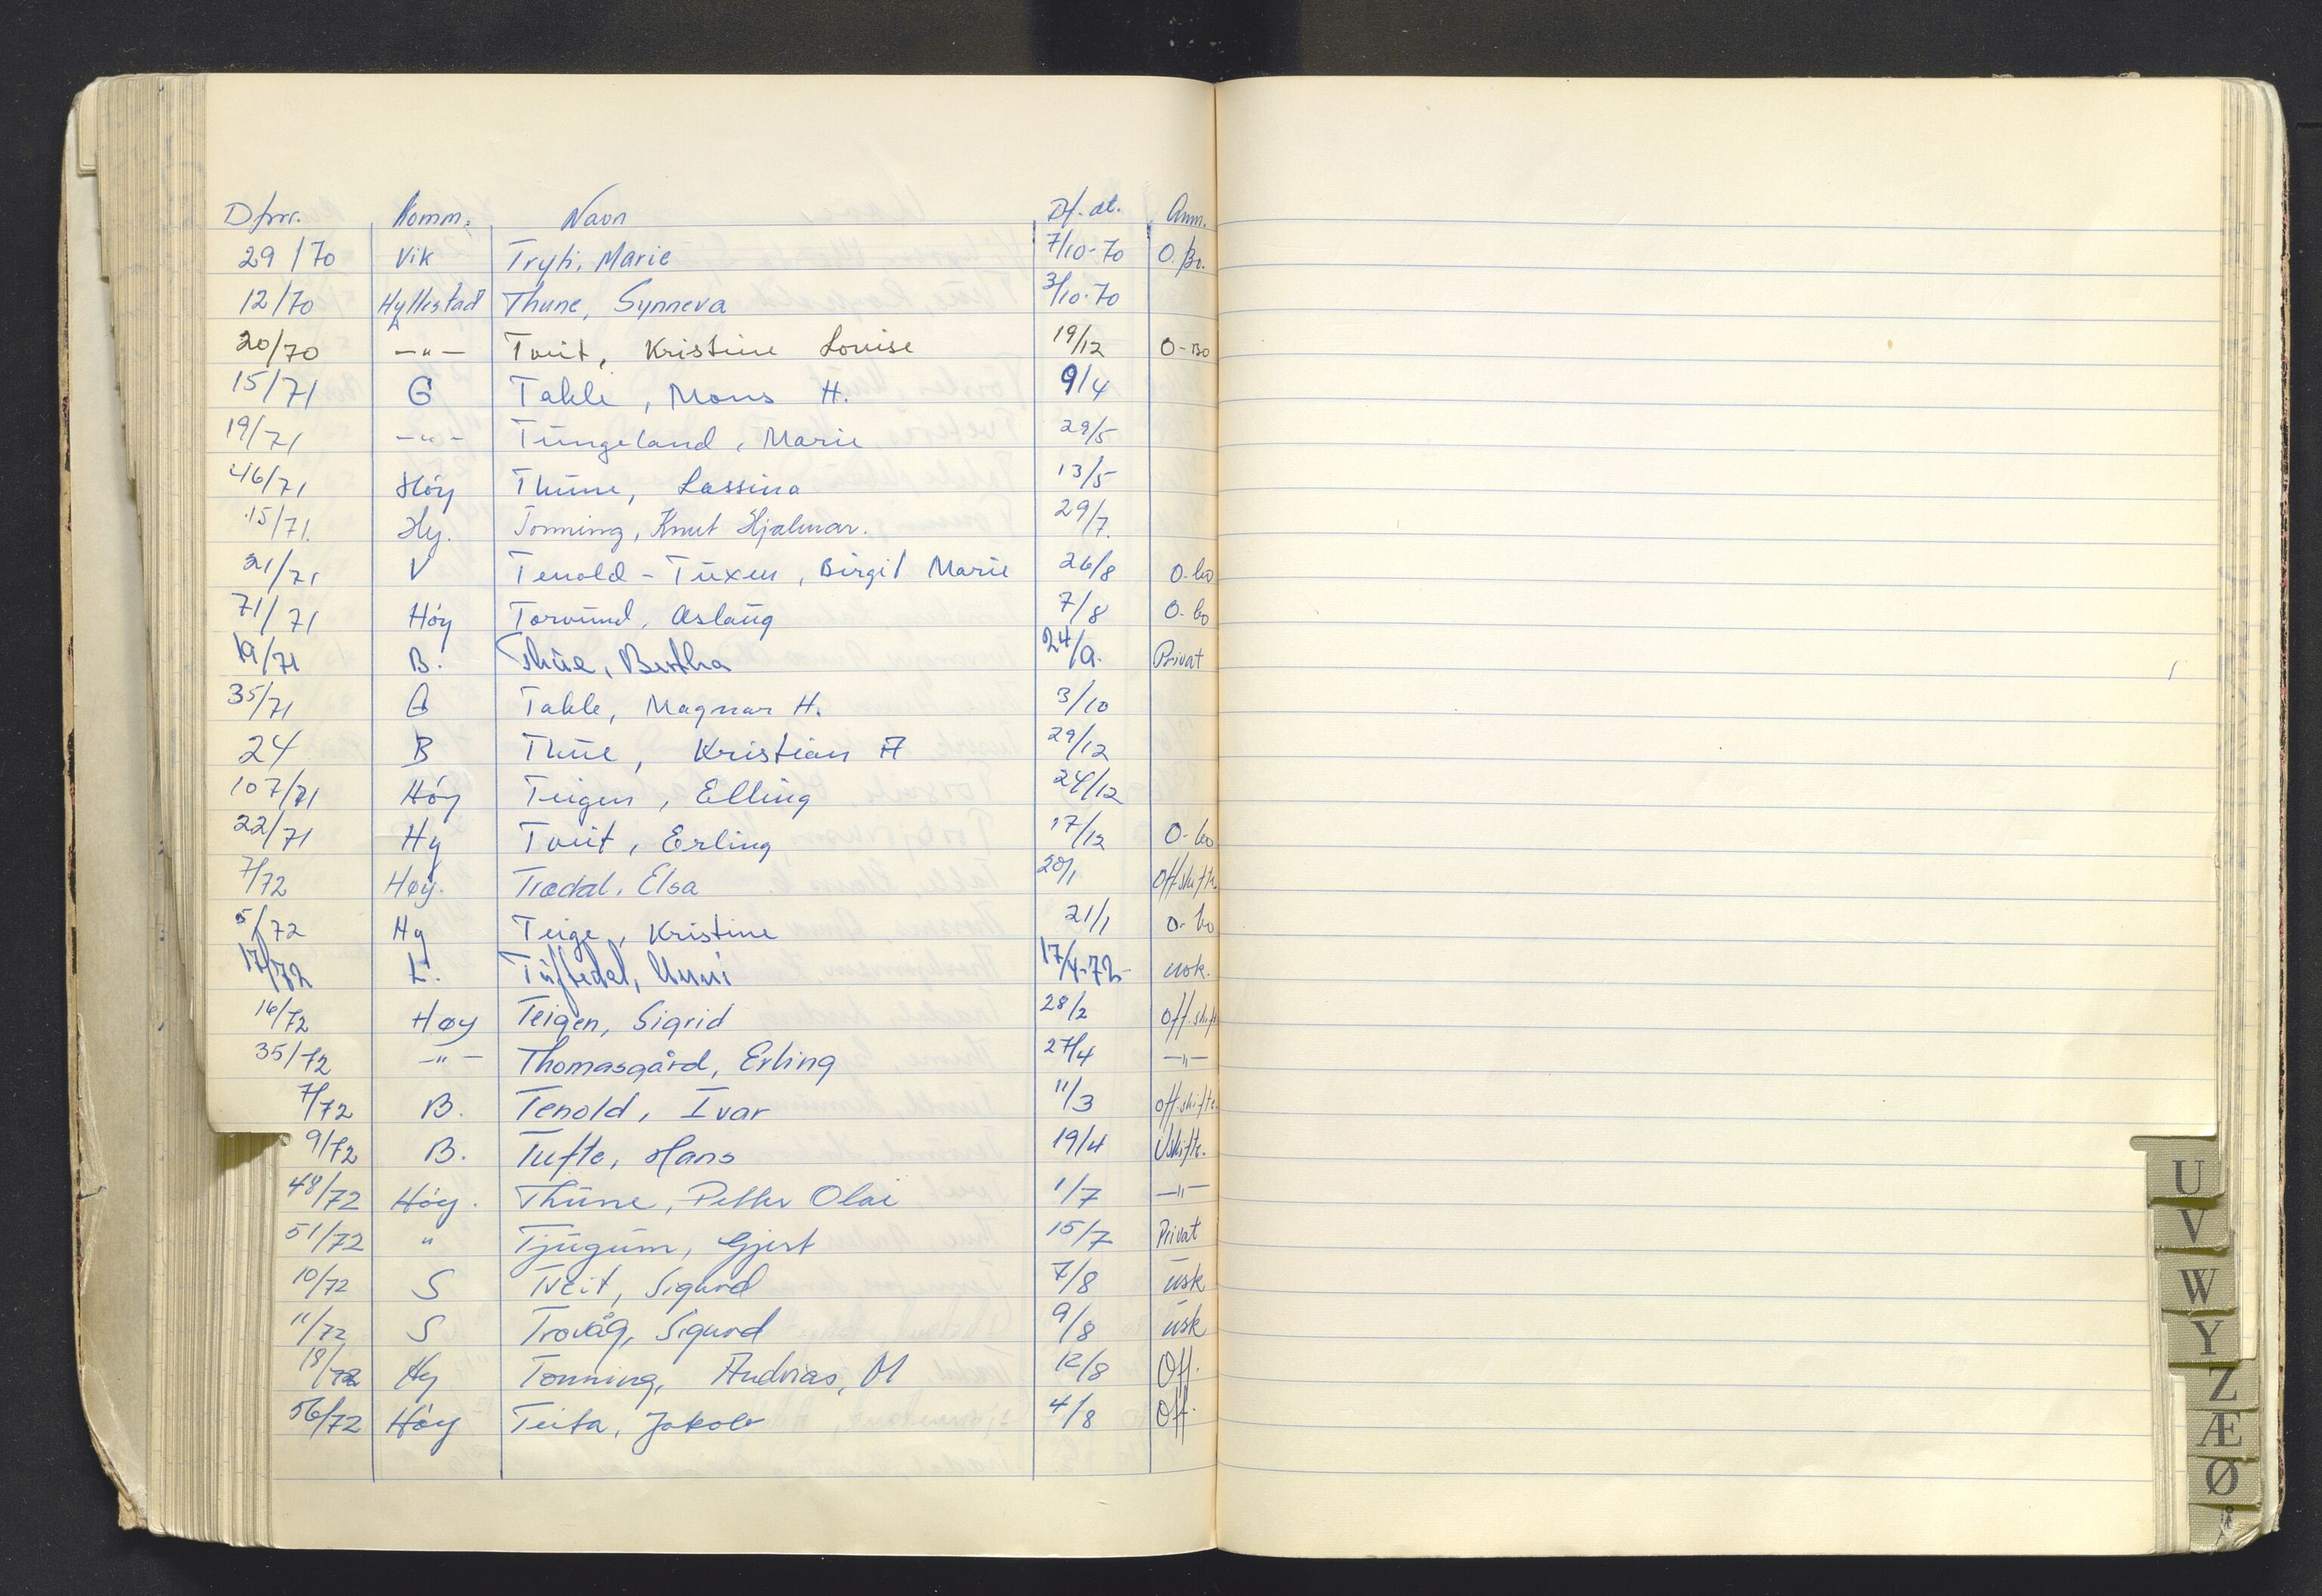 Dfnr. Komm. Navn Df. dt. Anm.
29/70 Vik Tryti, Marie 7/10-70 O. Bo.
12/70 Hyllestad Thune, Synneva 3/10-70
20/70 -"- Tveit, Kristine Louise 19/12 O-Bo
15/71 G Takle, Mons H. 9/4
19/71 -"- Tungeland, Marie 29/5
46/71 Höy Thune, Lassina 13/5
15/71 Hy. Tonning, Knut Hjalmar. 29/7.
21/71 V Tenold-Tuxen, Birgit Marie 26/8 O-bo
71/71 Höy Torvund, Aslaug 7/8 O-bo
19/71 B. Thue, Bertha 24/9. Privat
35/71 G Takle, Magnar H. 3/10
24 B Thue, Kristian A 29/12
107/71 Höy Teigen, Elling 24/12
22/71 Hy Tveit, Erling 17/12 O-bo
7/72 Høy. Trædal, Elsa 20/1 Off.skifte
5/72 Hy Teige, Kristine 21/1 O-bo
17/72 L. Tuftedal, Unni 17/4-72- usk.
16/72 Høy Teigen, Sigrid 28/2 Off.skift
35/72 -"- Thomasgård, Erling 27/4 -"-
7/72 B. Tenold, Ivar 11/3 off.skifte
9/72 B. Tufte, Hans 19/4 Uskifte.
48/72 Höy. Thune, Petter Olai 1/7 -"-
51/72 " Tjugum, Gjert 15/7 Privat
10/72 S Tveit, Sigurd 7/8 usk
11/72 S Trovåg, Sigurd 9/8 usk
18/72 Hy Tonning, Andreas, M 12/8 Off.
56/72 Höy Teita, Jakob 4/8 Off.
U
V
W
Y
Z
Æ
Ø
Å